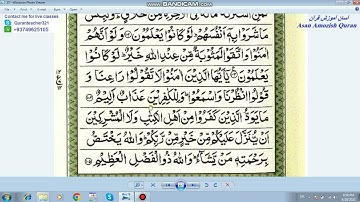 Contact me for live classes
Quranteacher321
+93749625105
آسان آموزش قرآن
Asan Amozish Quran
لَمَنِ اشْتَرٰىهُ مَا لَهٗ فِی الْاٰخِرَةِ مِنْ خَلَاقٍ وَلَبِئْسَ
مَا شَرَوْا بِهٖۤ اَنْفُسَهُمْ لَوْ كَانُوْا یَعْلَمُوْنَ ۝ وَلَوْ اَنَّهُمْ
اٰمَنُوْا وَاتَّقَوْا لَمَثُوْبَةٌ مِّنْ عِنْدِ اللّٰهِ خَیْرٌ لَوْ كَانُوْا
یَعْلَمُوْنَ ۝ یٰۤاَیُّهَا الَّذِیْنَ اٰمَنُوْا لَا تَقُوْلُوْا رَاعِنَا وَ
قُوْلُوا انْظُرْنَا وَاسْمَعُوْا وَلِلْكٰفِرِیْنَ عَذَابٌ اَلِیْمٌ ۝
مَا یَوَدُّ الَّذِیْنَ كَفَرُوْا مِنْ اَهْلِ الْكِتٰبِ وَلَا الْمُشْرِكِیْنَ
اَنْ یُّنَزَّلَ عَلَیْكُمْ مِّنْ خَیْرٍ مِّنْ رَّبِّكُمْ وَاللّٰهُ یَخْتَصُّ
بِرَحْمَتِهٖ مَنْ یَّشَآءُ وَاللّٰهُ ذُو الْفَضْلِ الْعَظِیْمِ ۝